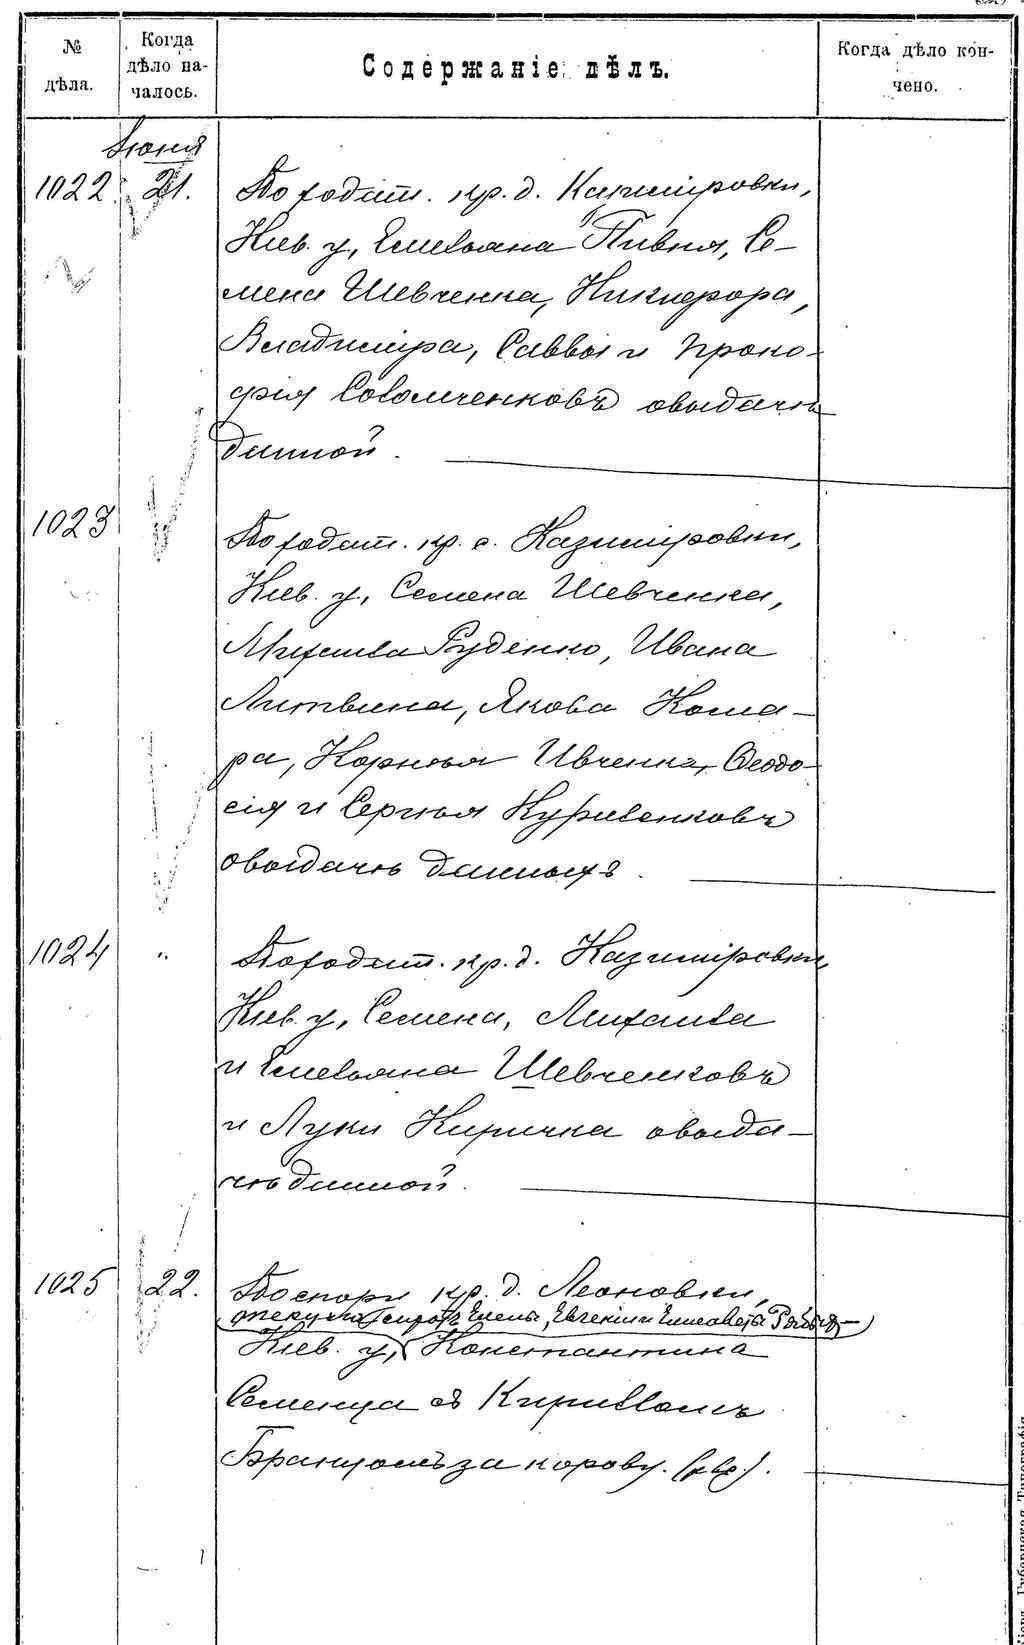 № дѣла.
Когда дѣло началось.
Содержаніе дѣлъ.
Когда дѣло кончено.
Іюня
1022. 21. По ходат. кр. д. Казиміровки,
Кіев. у, Емельяна Пивня, Се-
мена Шевченка, Никифора,
Владиміра, Саввы и Проко-
фія Соломченковъ о выдачѣ
данной.
1023 По ходат. кр. с. Казиміровки,
Кіев. у, Семена Шевченка,
Михаила Руденко, Ивана
Литвина, Якова Кома-
ра, Корнѣя Ивченка, Ѳеодо-
сія и Сергѣя Куриленковъ
о выдачѣ данныхъ.
1024 " По ходат. кр. д. Казиміровки,
Кіев. у, Семена, Михаила
и Емельяна Шевченковъ
и Луки Киричка о выда-
чѣ данной.
1025 22. По спору кр. д. Леоновки,
опекуна сиротъ Елены, Евгеніи и Елисаветы
Кіев. у, Константина
Семенца съ Кирилломъ
Бранцомъ за корову.
Губернская Типографія